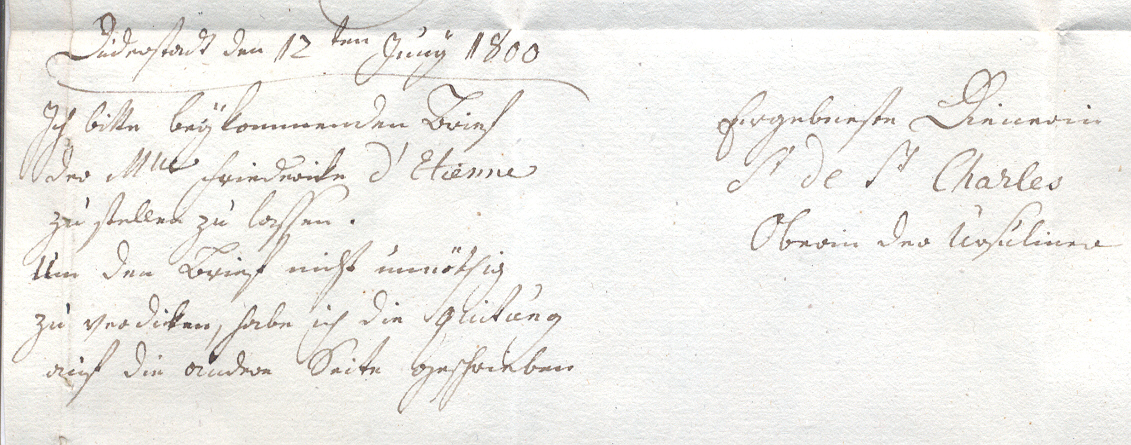 Duderstadt den 12ten Juny 1800
Ich bitte beÿkommenden Brief
der Mlle Friederike d'Etienne
zu stellen zu lassen.
Um den Brief nicht unnöthig
zu verdicken, habe ich die Quitung
auf die andere Seite geschrieben
Ergebneste Dienerin
S de St Charles
Oberin der Ursuliner